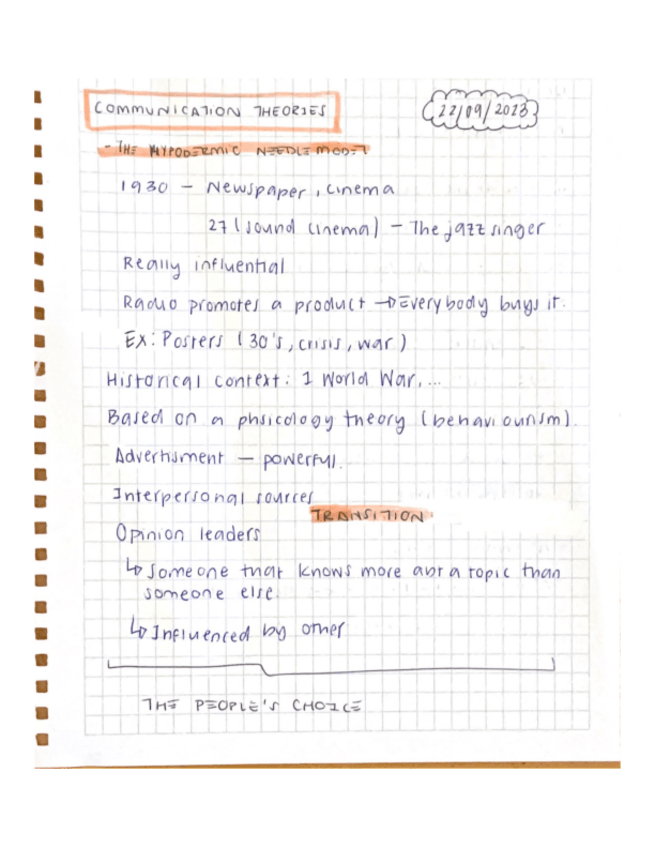 COMMUNICATION THEORIES
22/09/2023
- THE HYPODERMIC NEEDLE MODEL
1930 - Newspaper, cinema
27 (sound cinema) - The jazz singer
Really influential
Radio promotes a product → Everybody buys it.
Ex: Posters (30's, crisis, war)
Historical context: 1 World War, ...
Based on a phsicology theory (behaviourism).
Advertisment - powerful.
Interpersonal sources
TRANSITION
Opinion leaders
↳ Someone that knows more abt a topic than
someone else.
↳ Influenced by other
THE PEOPLE'S CHOICE